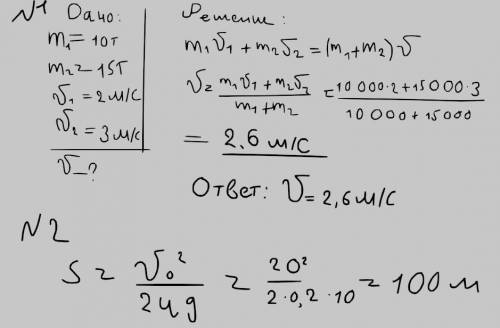 №1 Дано:
m₁ = 10т
m₂ = 15т
v₁ = 2 м/с
v₂ = 3 м/с
v – ?
Решение:
m₁v₁ + m₂v₂ = (m₁ + m₂) v
v = (m₁v₁ + m₂v₂)/(m₁ + m₂) = (10 000·2 + 15 000·3)/(10 000 + 15000)
= 2,6 м/с
Ответ: v = 2,6 м/с
№2
S = v₀²/2μg = 20²/2·0,2·10 = 100 м